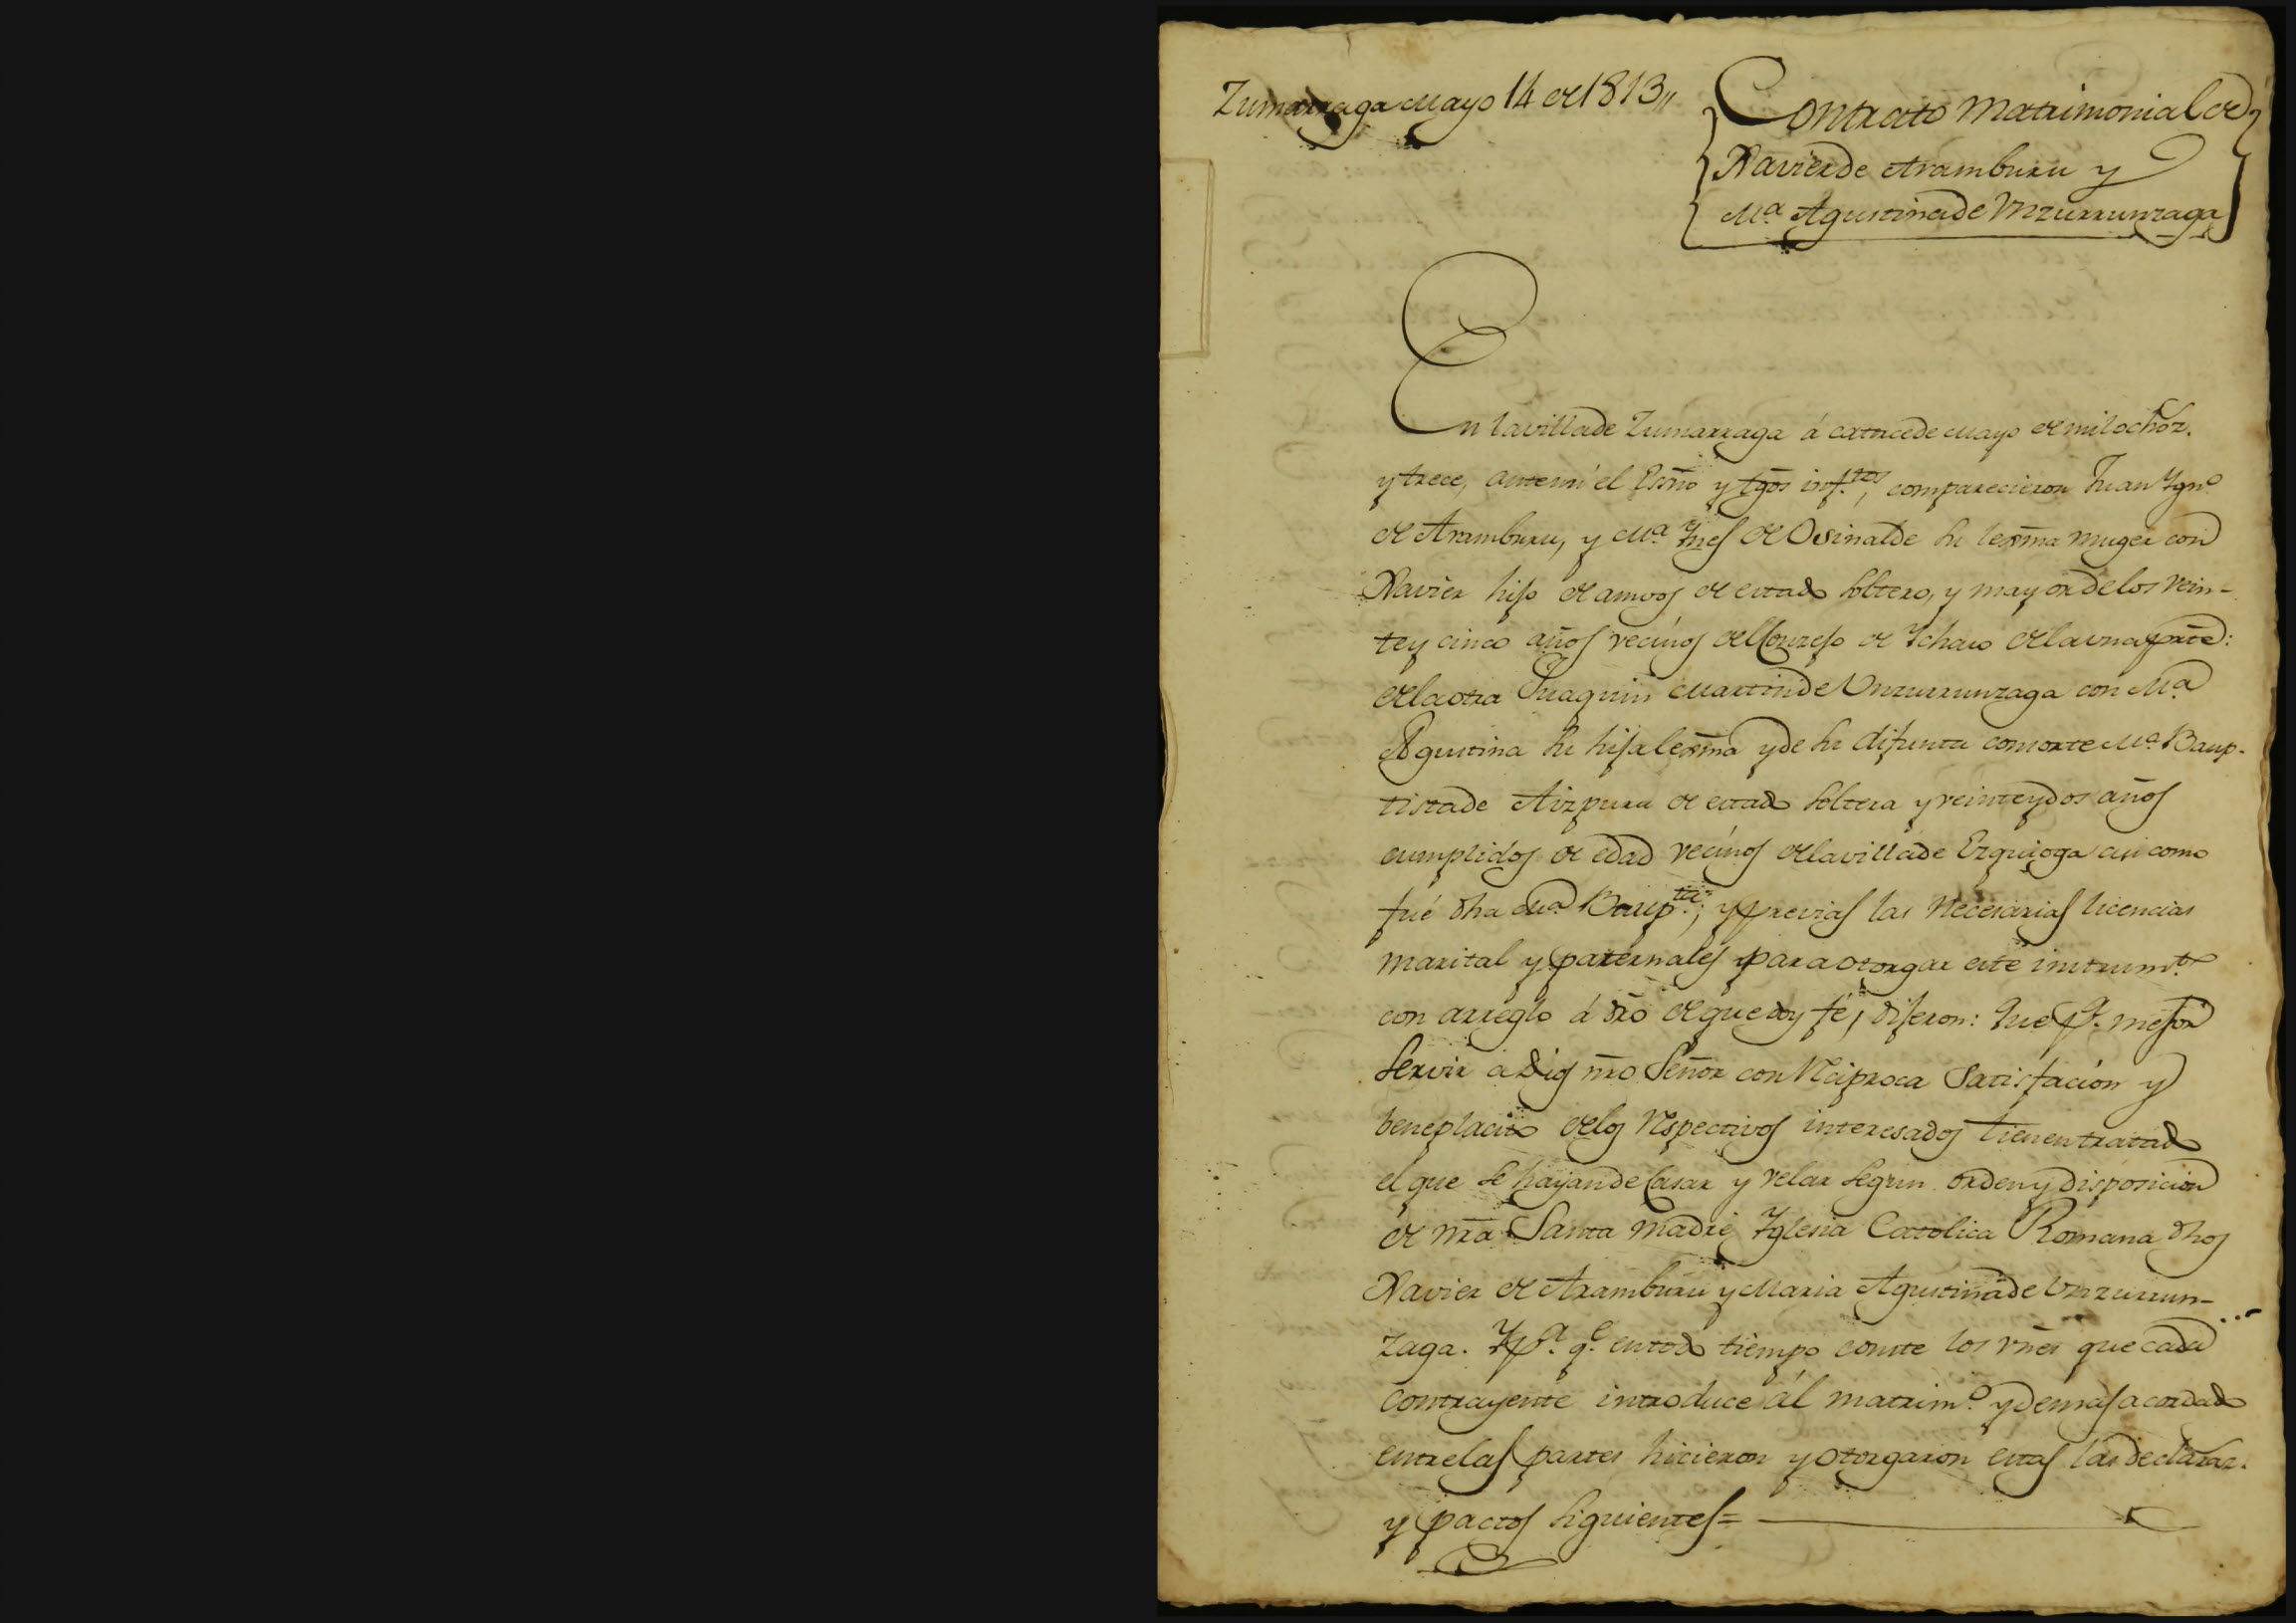 Zumarraga Mayo 14 de 1813,,
Contrato Matrimonial de
Xavier de Aramburu y
Mª Agustina de Vnzurrunzaga
En la villa de Zumarraga á catorce de Mayo de mil ochoz.
y trece, ante mi el Esno y tgos inftos, comparecieron Juan Ygnº
de Aramburu, y Mª Ynes de Osinalde su lexma muger con
Xavier hijo de amvos de estado soltero, y mayor de los vein-
te y cinco años vecinos del Conzejo de Ychaso de la vna parte:
de la otra Juaquin Martin de Vnzurrunzaga con Mª
Agustina su hija lexma y de su difunta consorte Mª Baup-
tista de Aizpuru de estado soltera y veinte y dos años
cumplidos de edad vecinos de la villa de Ezquioga asi como
fué dha Mª Baupta; y previas las necesarias licencias
marital y paternales para otorgar este instrumto
con arreglo á dro de que doy fé, dijeron: Que pª mejor
servir a Dios nro Señor con Reciproca Satisfacion y
beneplacito de los Respectivos interesados tienen tratado
el que se hayan de Casar y velar segun orden y disposicion
de nra Santa Madre Yglesia Catolica Romana dhos
Xavier de Aramburu y Maria Agustina de Vnzurrun-
zaga. Y pª qe en todo tiempo conste los vnes que cada
contrayente introduce ál matrimº y demas acordado
entre las partes hicieron y otorgaron estas las declaraz.
y pactos siguientes=